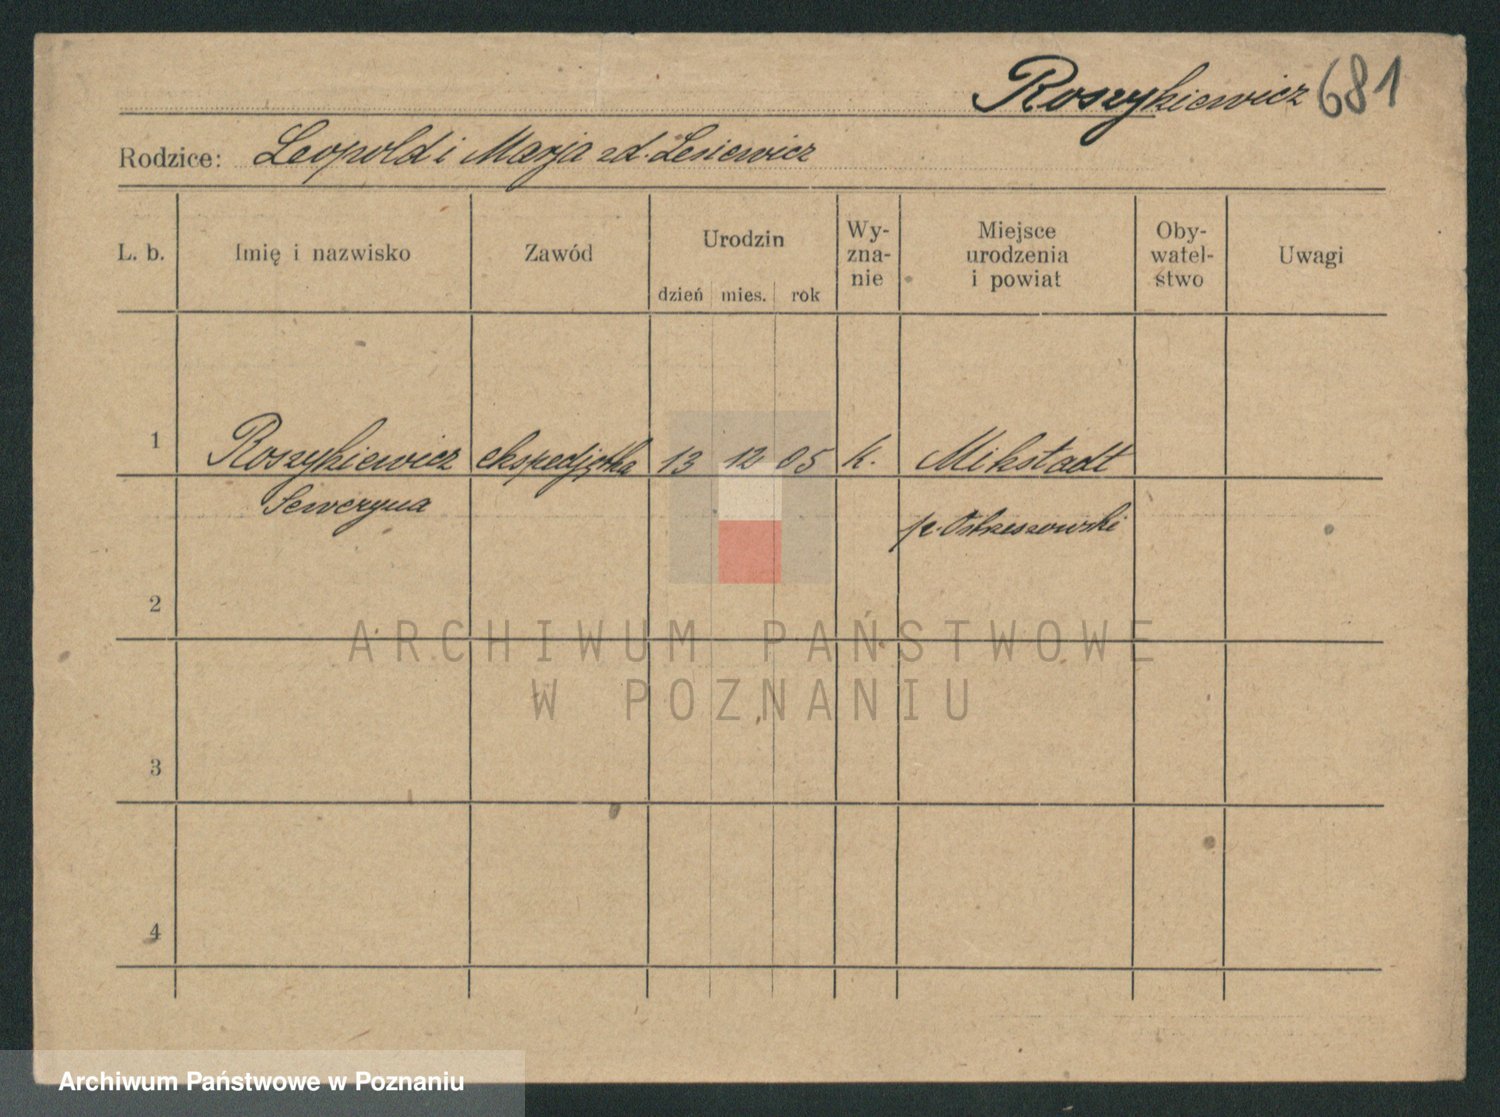 Roszykiewicz 681
Rodzice: Leopold i Marja zd. Lesiewicz
L. b. Imię i nazwisko Zawód Urodzin Wy- Miejsce Oby- Uwagi
zna- urodzenia watel-
dzień mies. rok nie i powiat stwo
1 Roszykiewicz ekspedjętka 13 12 05 k. Mikstadt
Seweryna p. Ostrzeszowski
2
3
4
ARCHIWUM PAŃSTWOWE
W POZNANIU
Archiwum Państwowe w Poznaniu